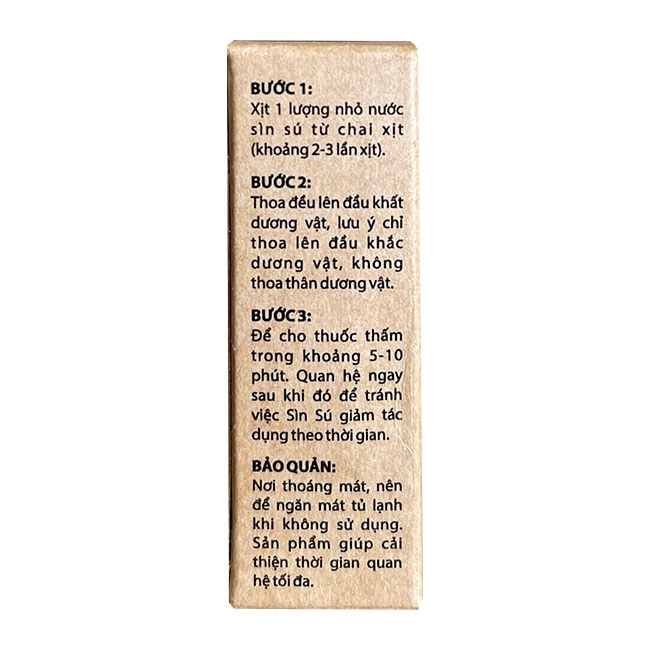 BƯỚC 1:
Xịt 1 lượng nhỏ nước
sìn sú từ chai xịt
(khoảng 2-3 lần xịt).
BƯỚC 2:
Thoa đều lên đầu khất
dương vật, lưu ý chỉ
thoa lên đầu khắc
dương vật, không
thoa thân dương vật.
BƯỚC 3:
Để cho thuốc thấm
trong khoảng 5-10
phút. Quan hệ ngay
sau khi đó để tránh
việc Sìn Sú giảm tác
dụng theo thời gian.
BẢO QUẢN:
Nơi thoáng mát, nên
để ngăn mát tủ lạnh
khi không sử dụng.
Sản phẩm giúp cải
thiện thời gian quan
hệ tối đa.